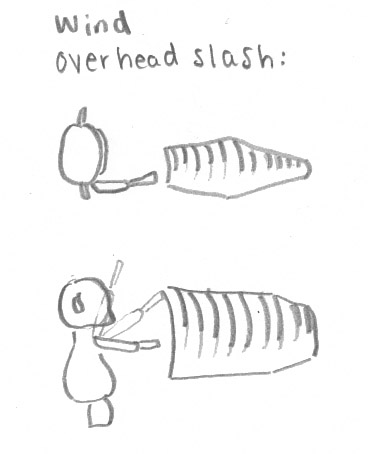 Wind
overhead slash: